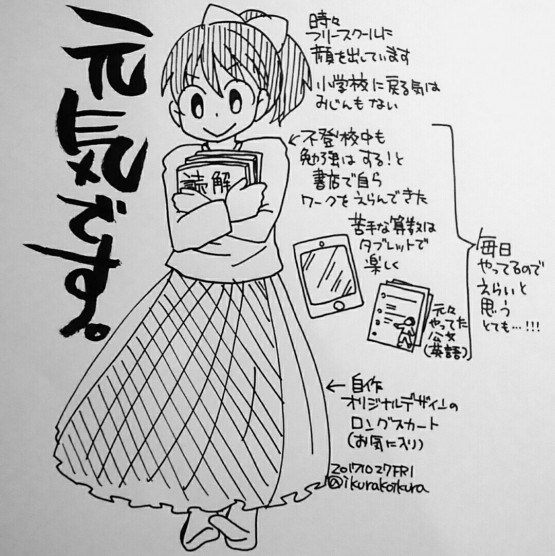 元気です。
時々
フリースクールに
顔を出しています
小学校に戻る気は
みじんもない
←不登校中も
勉強は する！と
書店で自ら
ワークをえらんできた
読解
苦手な算数は
タブレットで
楽しく
元々
やってた
公文
(英語)
毎日
やってるので
えらいと
思う
とても…!!!
← 自作
オリジナルデザインの
ロングスカート
(お気に入り)
20171027FRI
@ikurakoikura